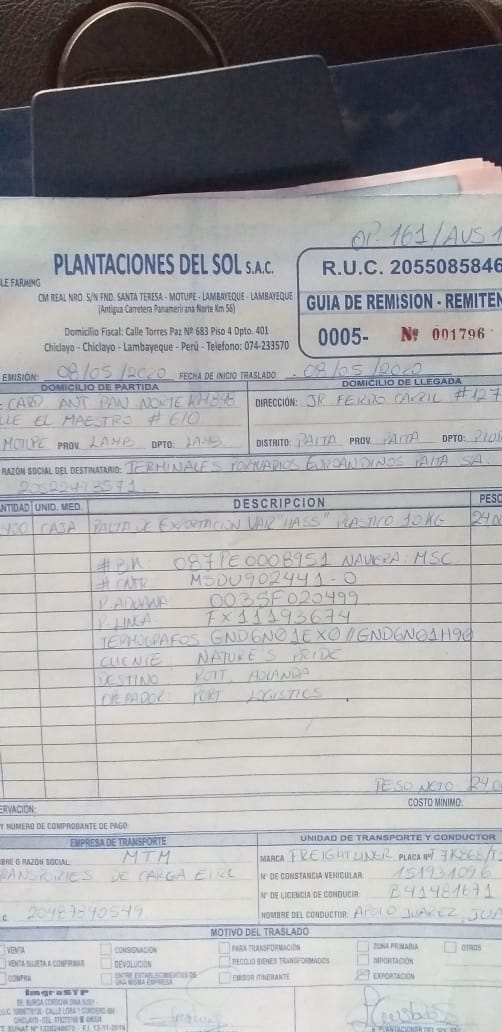 OP-161/AUS 1
PLANTACIONES DEL SOL S.A.C.
LE FARMING
CM REAL NRO. S/N FND. SANTA TERESA - MOTUPE - LAMBAYEQUE - LAMBAYEQUE
(Antigua Carretera Panamericana Norte Km 56)
Domicilio Fiscal: Calle Torres Paz Nº 683 Piso 4 Dpto. 401
Chiclayo - Chiclayo - Lambayeque - Perú - Telefono: 074-233570
R.U.C. 2055085846
GUIA DE REMISION - REMITEN
0005- Nº 001796
EMISIÓN: 08/05/2020 FECHA DE INICIO TRASLADO: 08/05/2020
DOMICILIO DE PARTIDA
CARR ANT PAN NORTE
LLE EL MAESTRO # 610
MOTUPE PROV. LAMB DPTO: LAMB
DOMICILIO DE LLEGADA
DIRECCIÓN: JR FERRO CARRIL #127
DISTRITO: PAITA PROV PAITA DPTO: PIUR
RAZÓN SOCIAL DEL DESTINATARIO: TERMINALES PORTUARIOS EUROANDINOS PAITA SA
20522473571
ANTIDAD UNID. MED. DESCRIPCION PESO
2400 CAJA PALTA DE EXPORTACION VAR "HASS" PLASTICO 10KG 2400
#BK: 087PE0008951 NAVIERA: MSC
# CNTR MSDU902441-0
P. ADUANA 0035F020499
P. LINEA FX11193674
TERMOGRAFOS GND6N01EX0//GND6N01H90
CLIENTE NATURE'S PRIDE
DESTINO ROTT. HOLANDA
OPERADOR PORT LOGISTICS
PESO NETO 2400
ERVACIÓN: COSTO MÍNIMO:
Y NÚMERO DE COMPROBANTE DE PAGO:
EMPRESA DE TRANSPORTE
BRE O RAZÓN SOCIAL: MTM
TRANSPORTES DE CARGA EIRL
C 20487840549
UNIDAD DE TRANSPORTE Y CONDUCTOR
MARCA FREIGHTLINER PLACA Nº
Nº DE CONSTANCIA VEHICULAR: 151931096
Nº DE LICENCIA DE CONDUCIR: B41481671
NOMBRE DEL CONDUCTOR: JUAREZ,
MOTIVO DEL TRASLADO
VENTA
VENTA SUJETA A CONFIRMAR
COMPRA
CONSIGNACIÓN
DEVOLUCIÓN
ENTRE ESTABLECIMIENTOS DE UNA MISMA EMPRESA
PARA TRANSFORMACIÓN
RECOJO BIENES TRANSFORMADOS
EMISOR ITINERANTE
ZONA PRIMARIA
IMPORTACIÓN
EXPORTACIÓN
OTROS